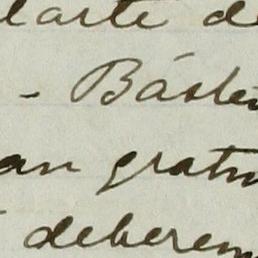 larte de
- Báste
an gratu
deberem